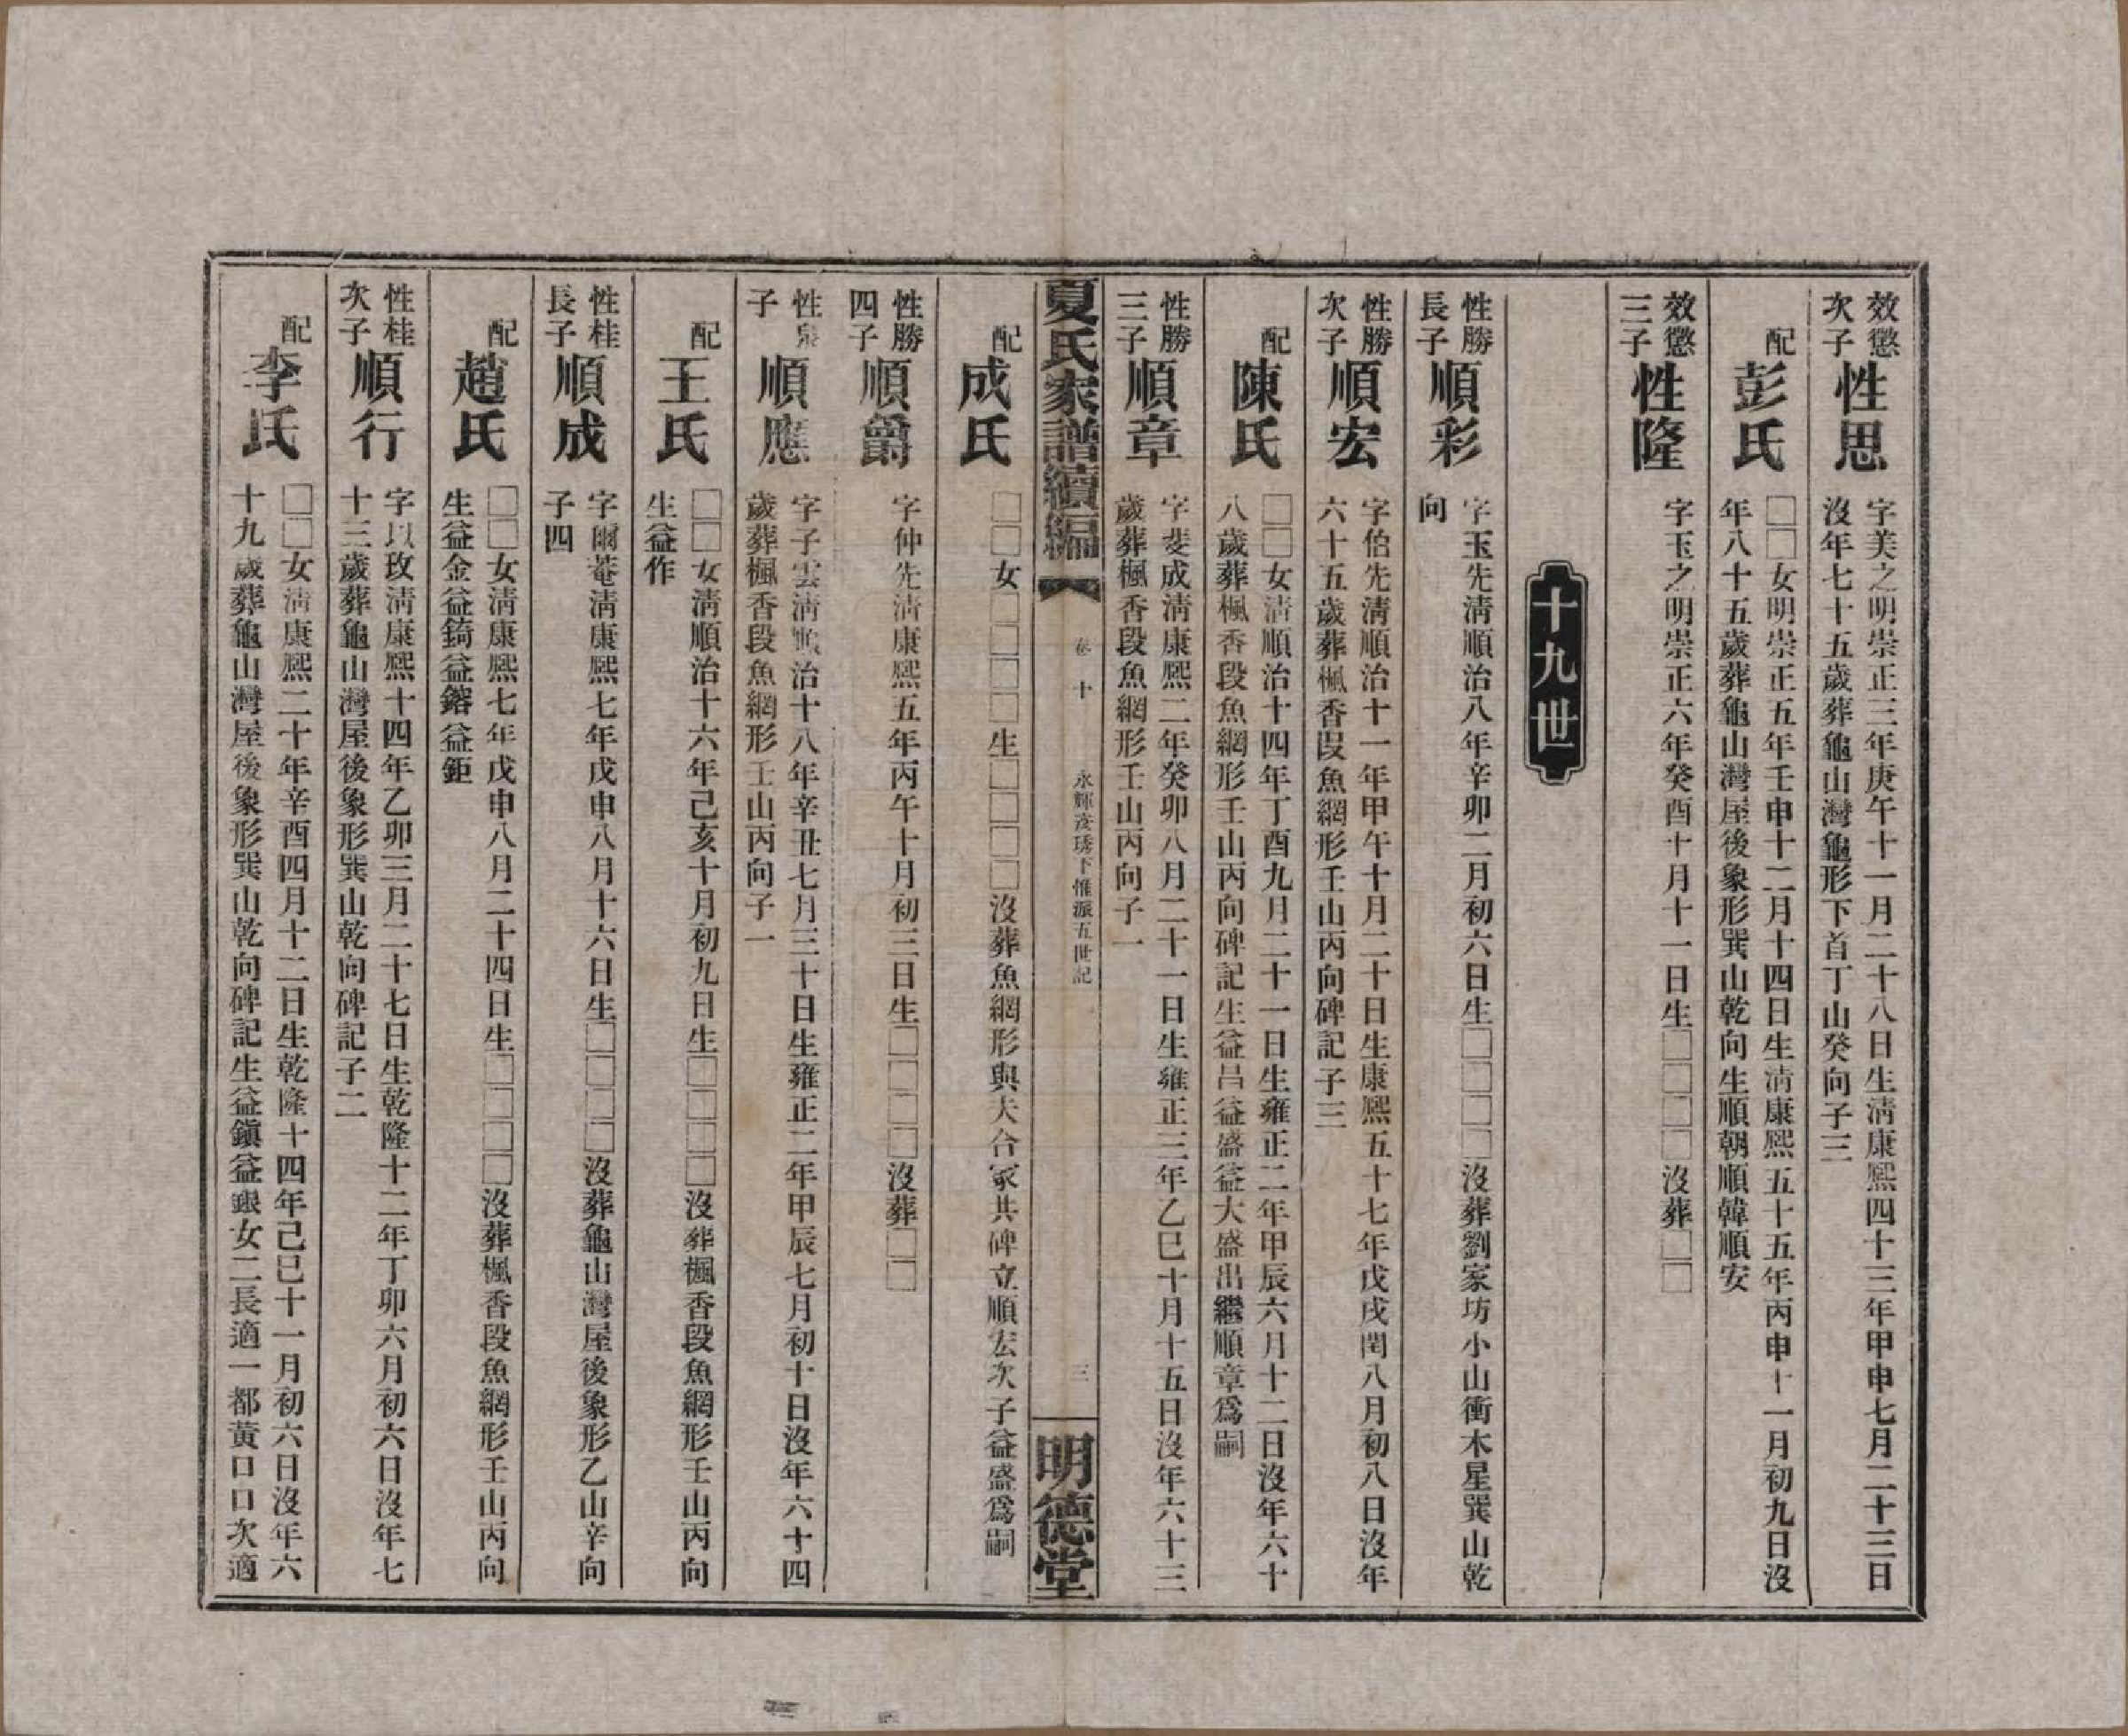 效懲
次子
性思
字美之明崇正三年庚午十一月二十八日生清康熙四十三年甲申七月二十三日
沒年七十五歲葬龜山灣龜形下首丁山癸向子三
配
彭氏
□□女明崇正五年壬申十二月十四日生清康熙五十五年丙申十一月初九日沒
年八十五歲葬龜山灣屋後象形巽山乾向生順朝順韓順安
效懲
三子
性隆
字玉之明崇正六年癸酉十月十一日生□□□□沒葬□□
十九世
性勝
長子
順彩
字玉先清順治八年辛卯二月初六日生□□□□沒葬劉家坊小山衝木星巽山乾
向
性勝
次子
順宏
字伯先清順治十一年甲午十月二十日生康熙五十七年戊戌閏八月初八日沒年
六十五歲葬楓香段魚網形壬山丙向碑記子三
配
陳氏
□□女清順治十四年丁酉九月二十一日生雍正二年甲辰六月十二日沒年六十
八歲葬楓香段魚網形壬山丙向碑記生益昌益盛益大盛出繼順章爲嗣
性勝
三子
順章
字斐成清康熙二年癸卯八月二十一日生雍正三年乙巳十月十五日沒年六十三
歲葬楓香段魚網形壬山丙向子一
夏氏家譜續編
卷十
永輝彥琇下惟派五世記
三
明德堂
配
成氏
□□女□□□□生□□□□沒葬魚網形與夫合冢共碑立順宏次子益盛爲嗣
性勝
四子
順爵
字仲先清康熙五年丙午十月初三日生□□□□沒葬□□
性泉
子
順應
字子雲清順治十八年辛丑七月三十日生雍正二年甲辰七月初十日沒年六十四
歲葬楓香段魚網形壬山丙向子一
配
王氏
□□女清順治十六年己亥十月初九日生□□□□沒葬楓香段魚網形壬山丙向
生益作
性桂
長子
順成
字爾菴清康熙七年戊申八月十六日生□□□□沒葬龜山灣屋後象形乙山辛向
子四
配
趙氏
□□女清康熙七年戊申八月二十四日生□□□□沒葬楓香段魚網形壬山丙向
生益金益錡益鎔益鉅
性桂
次子
順行
字以玫清康熙十四年乙卯三月二十七日生乾隆十二年丁卯六月初六日沒年七
十三歲葬龜山灣屋後象形巽山乾向碑記子二
配
李氏
□□女清康熙二十年辛酉四月十二日生乾隆十四年己巳十一月初六日沒年六
十九歲葬龜山灣屋後象形巽山乾向碑記生益鎭益銀女二長適一都黃口口次適